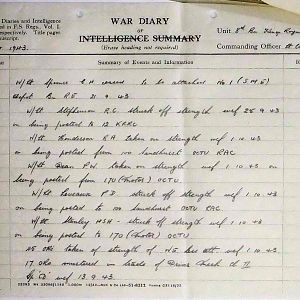 Diaries and Intelligence
in F.S. Regs., Vol. I.
respectively. Title pages
manuscript.
1943.
WAR DIARY
OF
INTELLIGENCE SUMMARY
(Erase heading not required)
Unit
Commanding Officer
Summary of Events and Information
W/Lt Spence C H ceased to be attached No 1 (SME)
Depot Bn R.E. 21.9.43
W/Lt Stephenson R.C. struck off strength wef 25.9.43
on being posted to 12 KRRC
W/Lt Henderson R A taken on strength wef 1.10.43
on being posted from 100 Sandhurst OCTU RAC
W/Lt Dean F W taken on strength wef 1.10.43 on
being posted from 170 OCTU
W/Lt P D struck off strength wef 1.10.43
on being posted to 100 Sandhurst OCTU RAC
W/Lt Stanley HSH - struck off strength wef 1.10.43
on being posted to 170 OCTU
45 ORs taken of strength of HS att wef 1.10.43
17 ORs mustered in trade of Driver Mech Cl II
wef 13.9.43